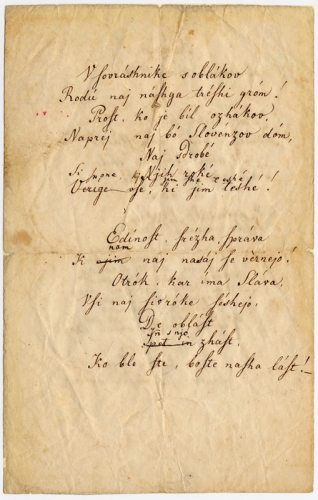 V sovráshnike s oblákov
Rodú naj nashga tréshi gróm!
Prost, ko je bil ozhákov,
Naprej naj bó Slovénzov dóm,
Naj sdrobé
Njih roké
Verige vse, ki jim teshé!
Edinost, srézha, správa
nam
K naj nasáj se vernejo!
Otrók, kar ima Sláva,
Vsi naj si v róke séshejo,
De oblást
ſ' njo
spet in zhást,
Ko bli ste, boste nasha lást!